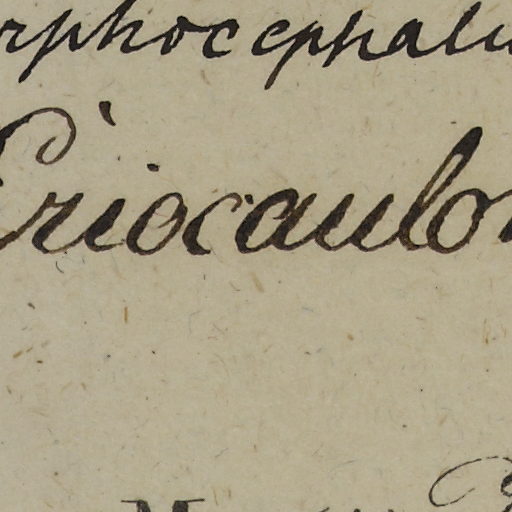 rphocephalu
Eriocaulon